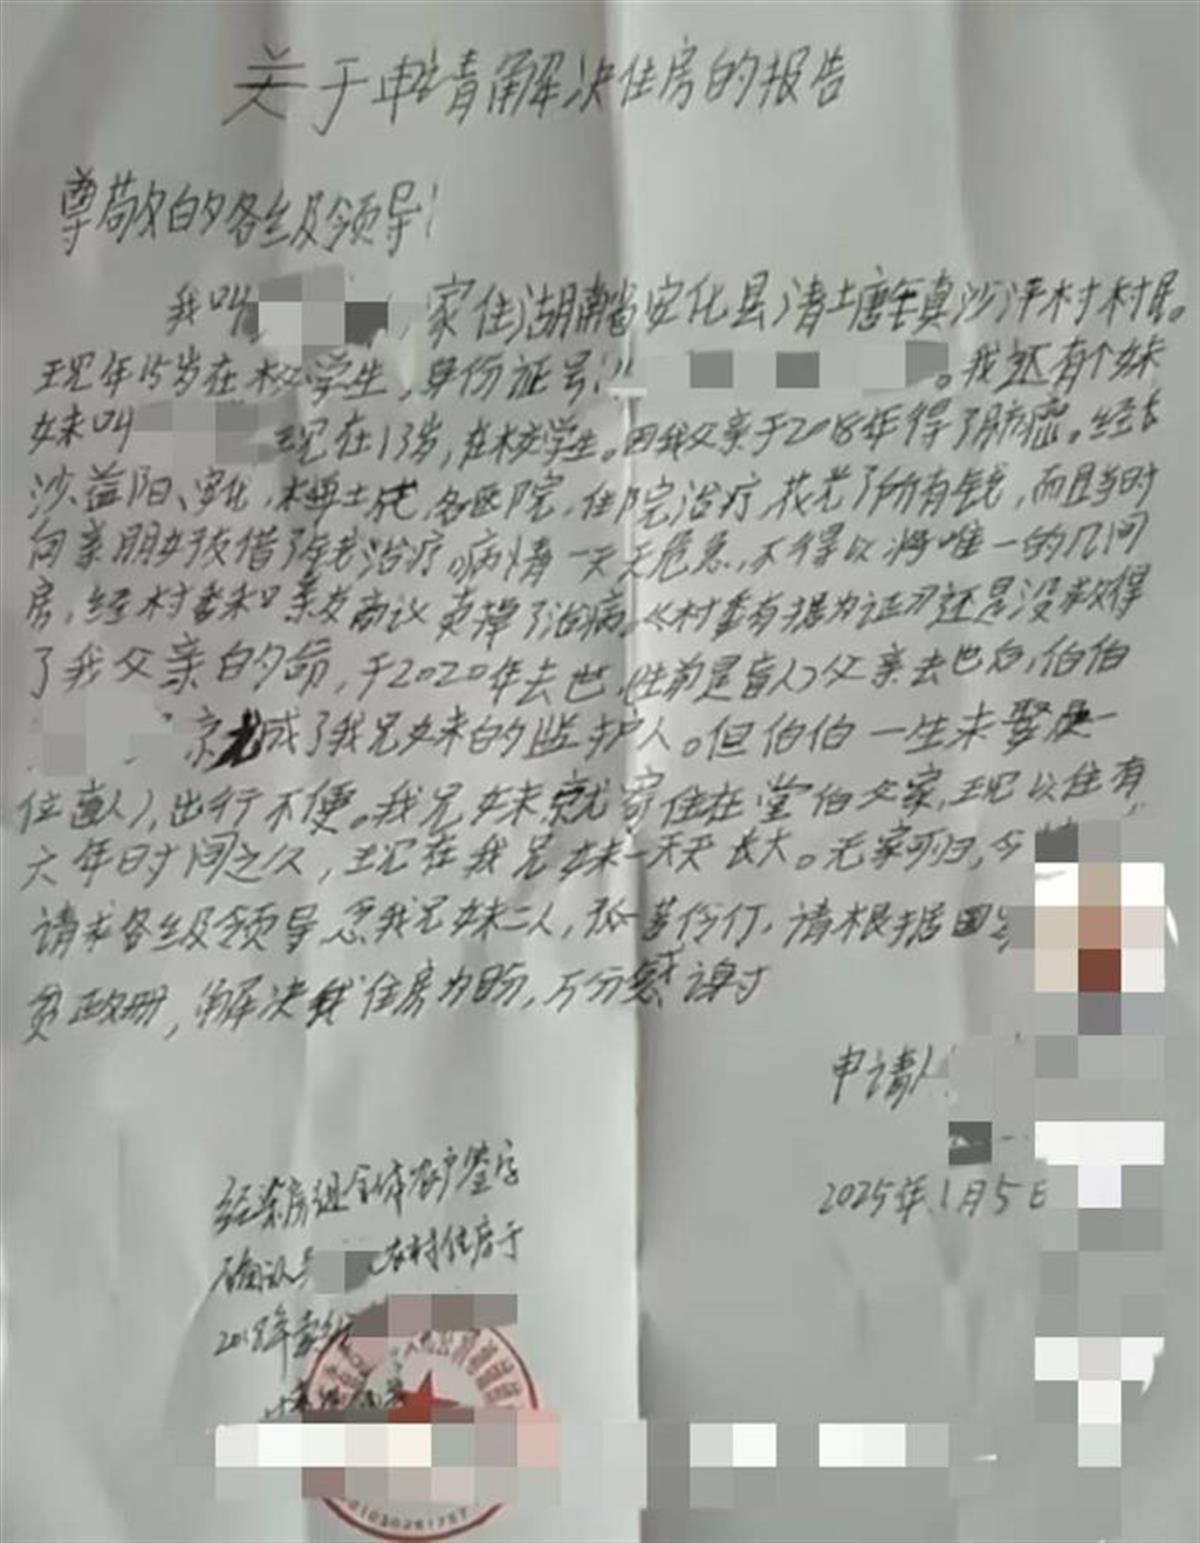 关于申请解决住房的报告
尊敬的各级领导!
我叫 ,家住湖南省安化县清塘镇真沙泙村村民。
现年15岁在校学生,身份证号: 。我还有个妹
妹叫 现在13岁,在校学生。因我父亲于2018年得了肺癌。经长
沙、益阳、安化、 各医院,住院治疗,花光了所有钱,而且当时
向亲朋好友借了钱去治疗。病情一天天危急,不得以将唯一的几间
房,经村委和亲友商议卖掉了治病。《村委有据为证》还是没救得
了我父亲的命,于2020年去世,(生前是盲人)父亲去世后,伯伯
成了我兄妹的监护人。但伯伯一生未娶是一
位盲人),出行不便。我兄妹就寄住在堂伯父家,现以住有
六年时间之久,现在我兄妹一天天长大。无家可归,今
请求各级领导,念我兄妹二人,孤苦伶仃,请根据国
贫政册,解决我住房为盼,万分感谢
申请人
2025年1月5日
经 房组全体农户签字
确认 农村住房于
2018年卖给